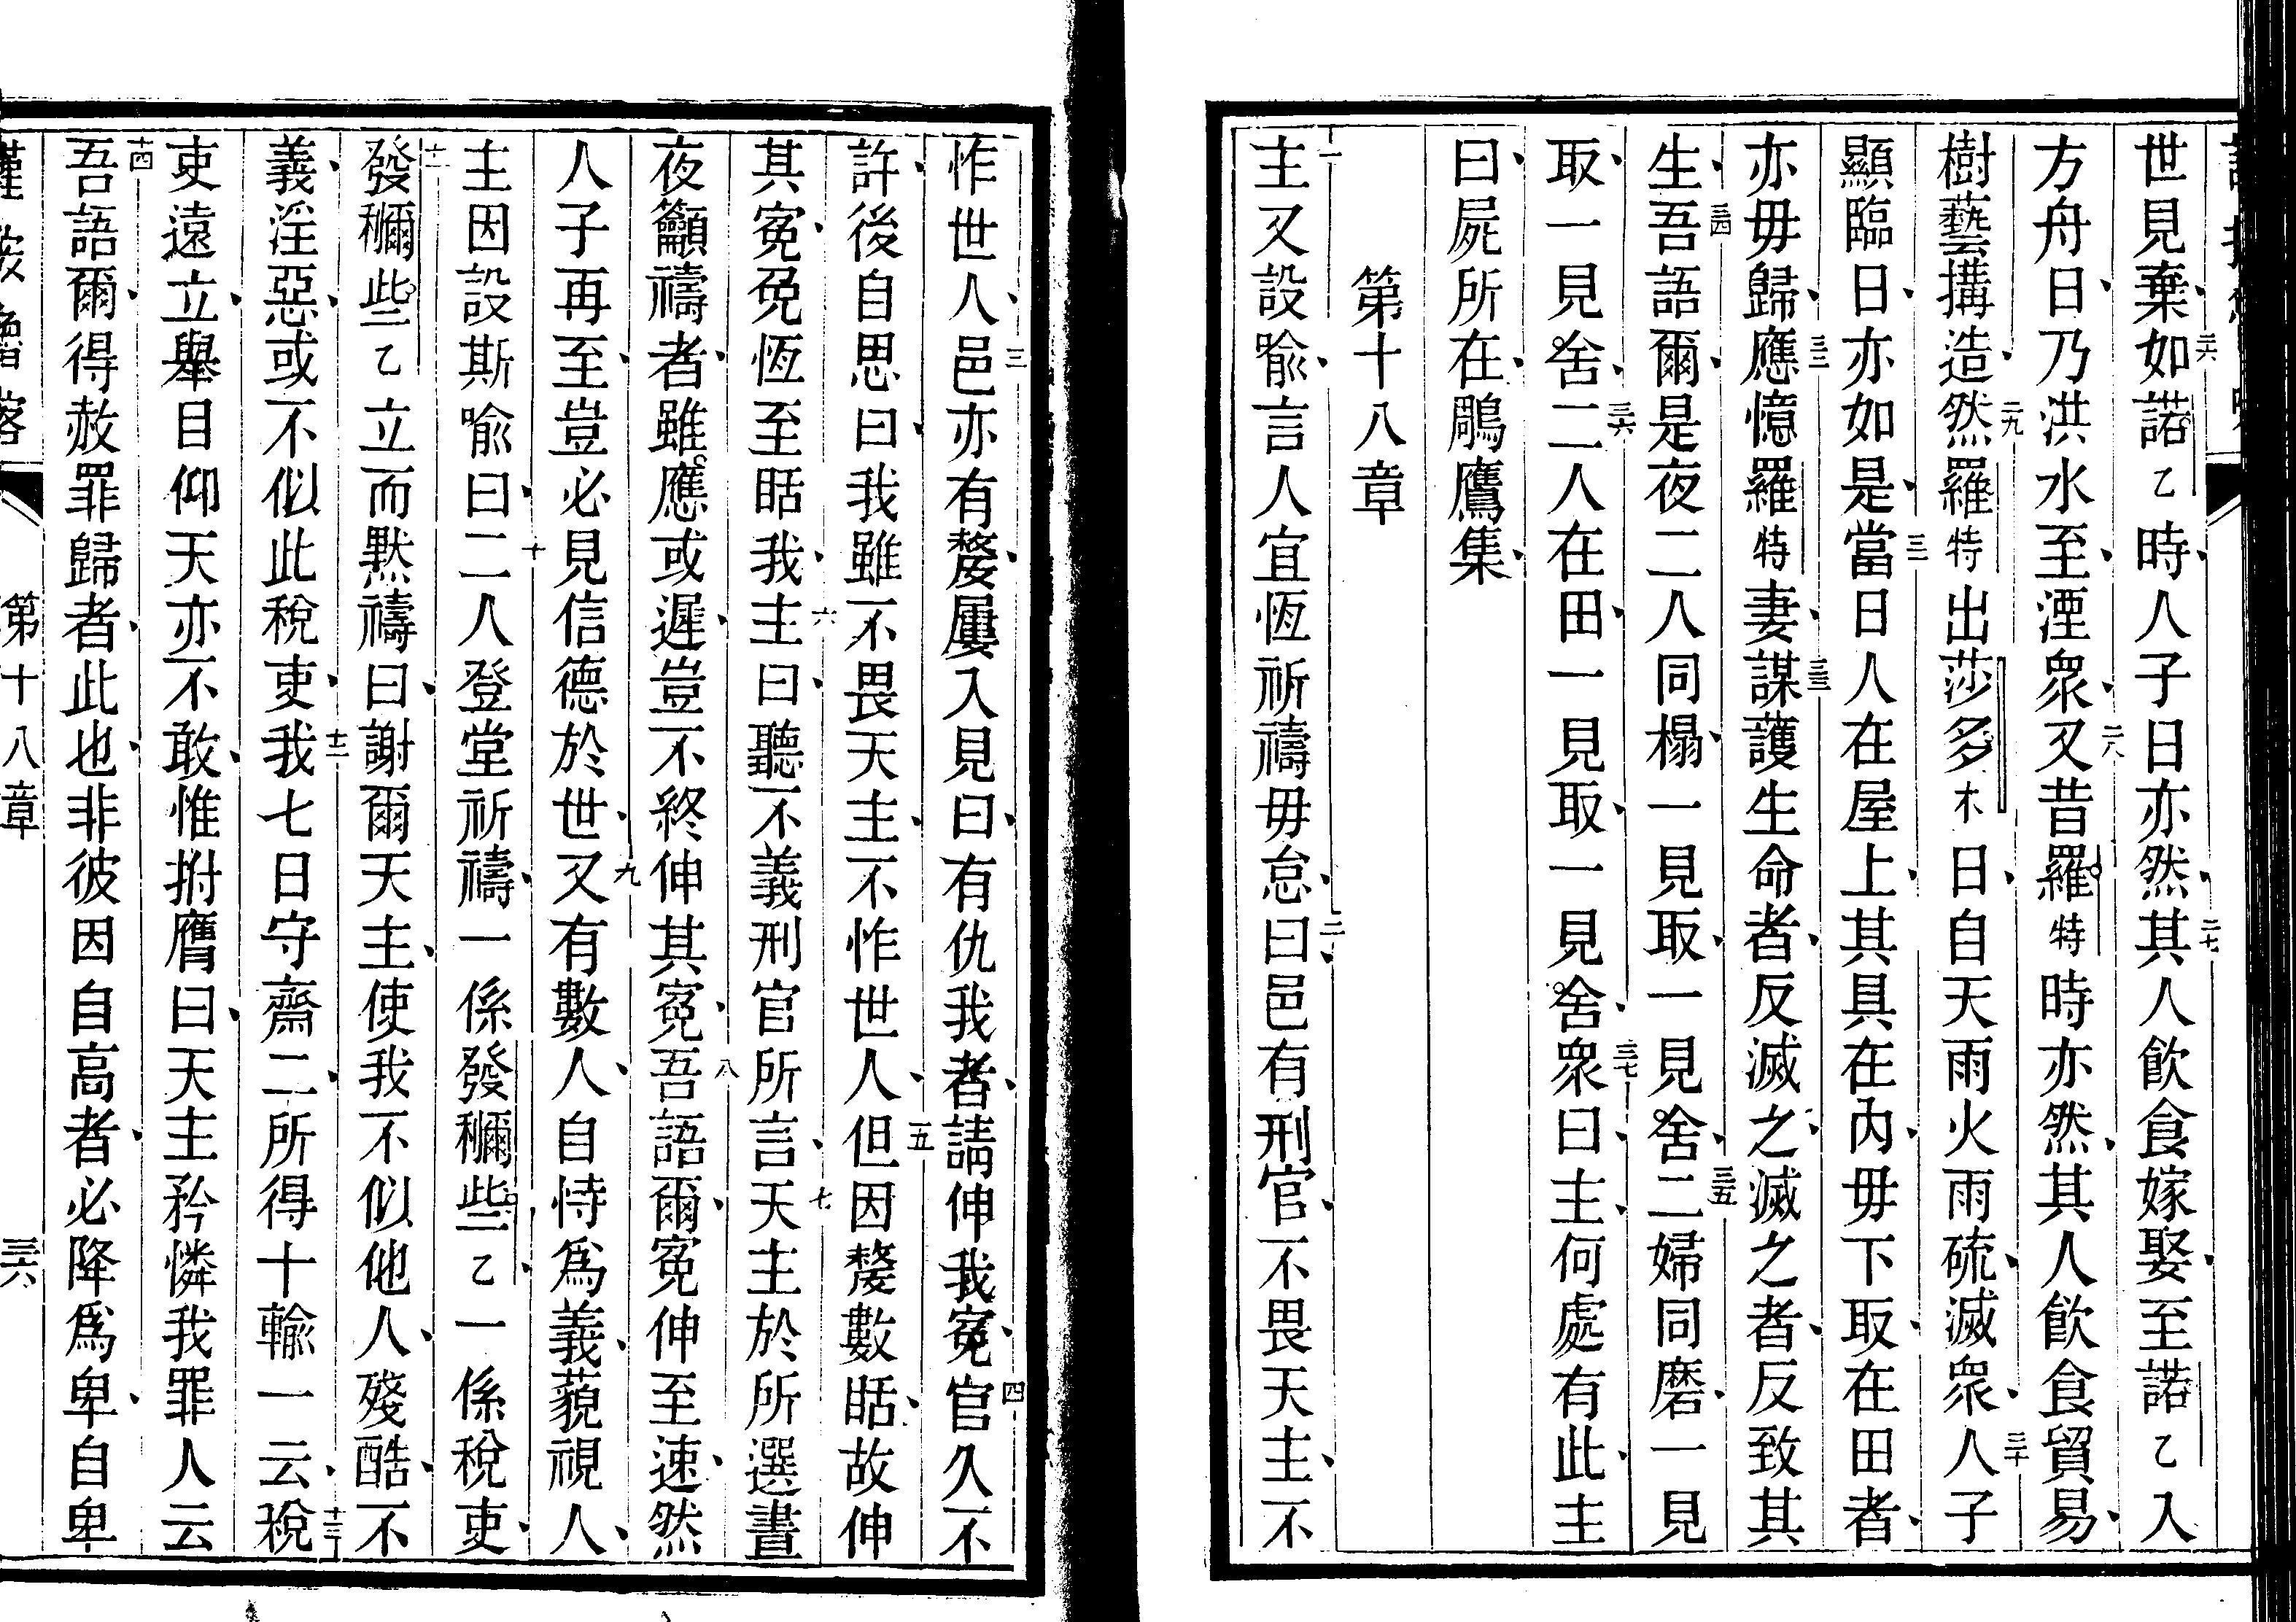 世見棄如諾乙時人子日亦然其人飮食嫁娶至諾乙入
方舟日乃洪水至湮衆又昔羅特時亦然其人飮食貿易
樹藝搆造然羅特出莎多木日自天雨火雨硫滅衆人子
顯臨日亦如是當日人在屋上其具在內毋下取在田者
亦毋歸應憶羅特妻謀護生命者反滅之滅之者反致其
生吾語爾是夜二人同榻一見取一見舍二婦同磨一見
取一見舍二人在田一見取一見舍衆曰主何處有此主
曰屍所在鵰鷹集
第十八章
主又設喩言人宜恆祈禱毋怠曰邑有刑官不畏天主不
怍世人邑亦有嫠屢入見曰有仇我者請伸我寃官久不
許後自思曰我雖不畏天主不怍世人但因嫠數聒故伸
其寃免恆至聒我主曰聽不義刑官所言天主於所選晝
夜籲禱者雖應或遲豈不終伸其寃吾語爾寃伸至速然
人子再至豈必見信德於世又有數人自恃爲義藐視人
主因設斯喩曰二人登堂祈禱一係發穪些乙一係稅吏
發穪些乙立而默禱曰謝爾天主使我不似他人殘酷不
義淫惡或不似此稅吏我七日守齋二所得十輸一云稅
吏遠立舉目仰天亦不敢惟拊膺曰天主矜憐我罪人云
吾語爾得赦罪歸者此也非彼因自高者必降爲卑自卑
第十八章 三六